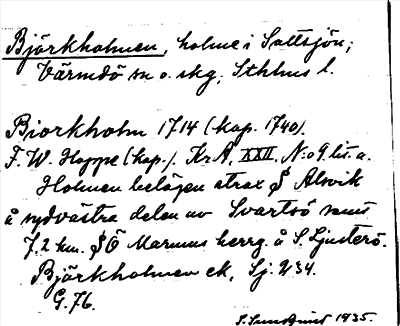 Björkholmen, holme i Saltsjön;
Värmdö sn o. skg; Sthlms l.
Biorkholm 1714 (kop. 1740).
F. W. Hoppe (kop.). KrA, XXII, N:o 9 lit. a.
Holmen belägen strax § Alsvik
å sydvästra delen av Svartsö samt
7,2 km. § Ö Marums herrg. å S. Ljusterö.
Björkholmen ek, Sj. 234.
G. 76.
S. Sundqvist 1935.